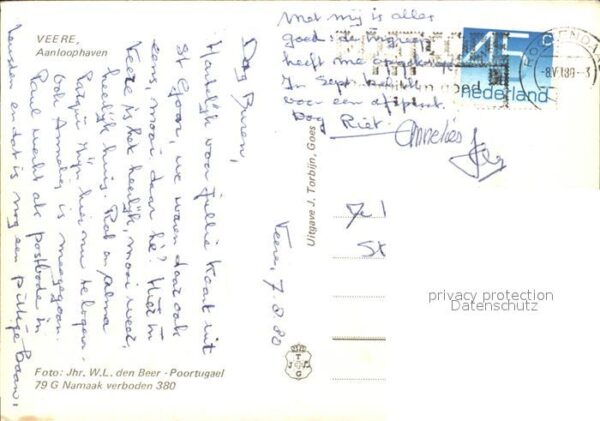 VEERE,
Aanloophaven
Dag Buren,
Hartelijk voor jullie kaart uit
St Goar, we waren daar ook
eens, mooi daar hè? Hier in
Veere is het heerlijk, mooi weer,
heerlijk huis. Rob en Alma
zijn hier nu te logeren.
ook Annelies is meegegaan.
Paul werkt als postbode in
en dat is nog een pittige baan.
Met mij is alles
goed: de
heeft me
In Sept.
voor een
Dag Riet
Annelies
Veere, 7.8.80
Uitgave J. Torbijn, Goes
45c
nederland
ROOSENDAAL
-8.VIII.80-3
St
T
G
privacy protection
Datenschutz
Foto: Jhr. W.L. den Beer - Poortugael
79 G Namaak verboden 380